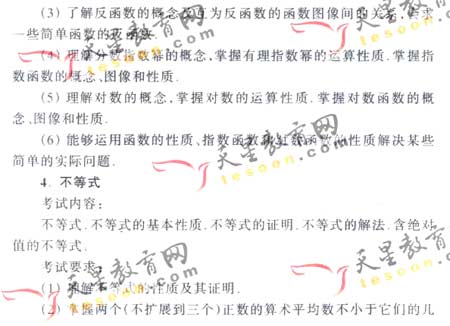 (3) 了解反函数的概念及互为反函数的函数图像间的关系,会求
一些简单函数的反函数.
(4) 理解分数指数幂的概念,掌握有理指数幂的运算性质.掌握指
数函数的概念、图像和性质.
(5) 理解对数的概念,掌握对数的运算性质.掌握对数函数的概
念、图像和性质.
(6) 能够运用函数的性质、指数函数和对数函数的性质解决某些
简单的实际问题.
4. 不等式
考试内容:
不等式.不等式的基本性质.不等式的证明.不等式的解法.含绝对
值的不等式.
考试要求:
(1) 理解不等式的性质及其证明.
(2) 掌握两个(不扩展到三个)正数的算术平均数不小于它们的几
天星教育网
tesoon.com
天星教育网
tesoon.com
天星教育网
tesoon.com
天星教育网
tesoon.com
天星教育网
tesoon.com